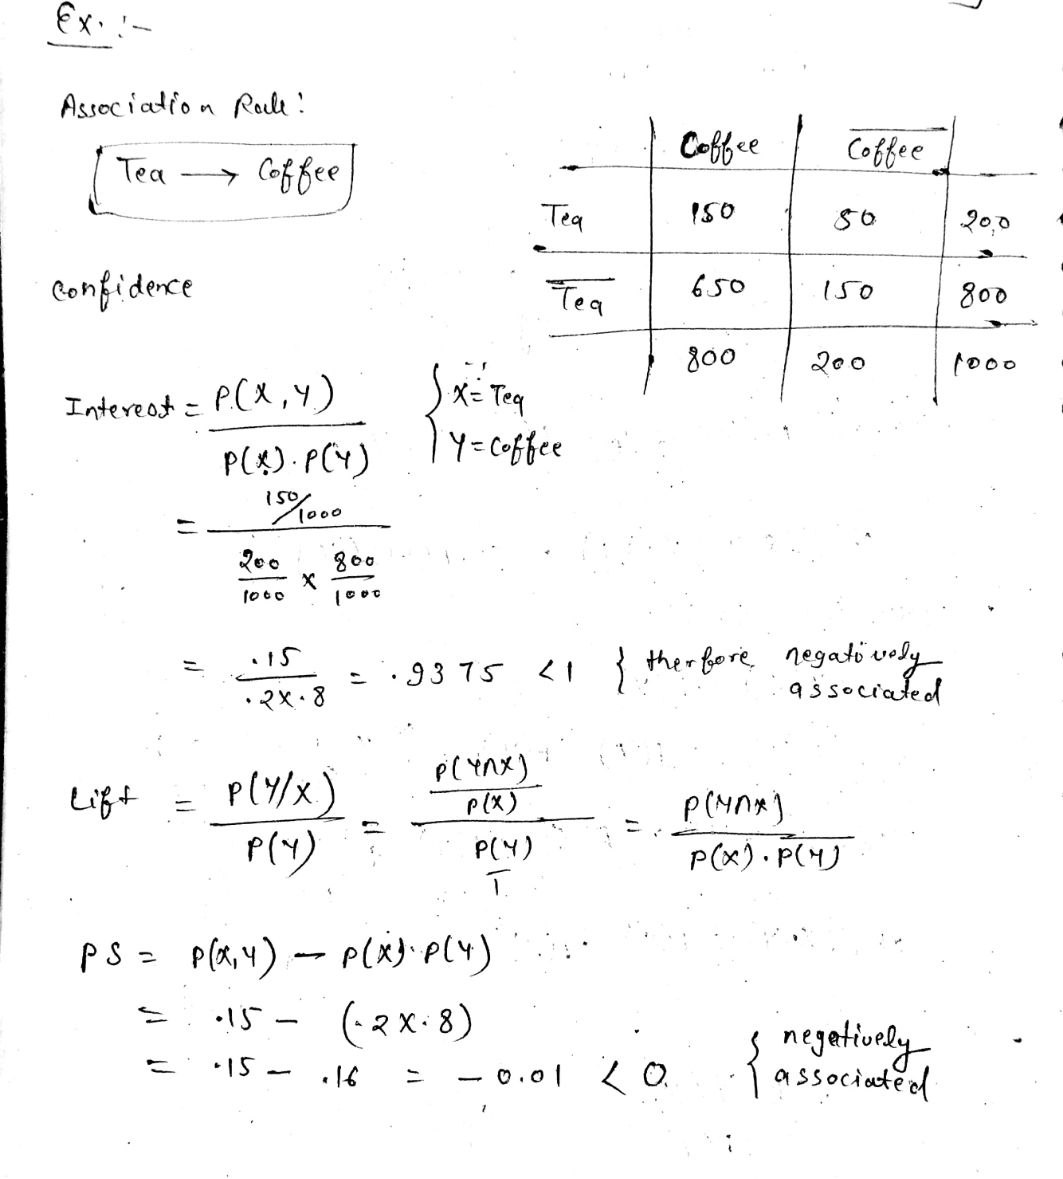 Ex. :-
Association Rule:
Tea → Coffee
Coffee C̅o̅f̅f̅e̅e̅
Tea 150 50 200
T̅e̅a̅ 650 150 800
800 200 1000
Confidence
Interest = P(X,Y) / P(X).P(Y) { X= Tea
Y= Coffee
= 150/1000 / 200/1000 x 800/1000
= .15 / .2x.8 = .9375 <1 { therfore negatively
associated
Lift = P(Y/X) / P(Y) = P(Y∩X)/P(X) / P(Y)/1 = P(Y∩X) / P(X).P(Y)
PS = P(X,Y) – P(X).P(Y)
= .15 – (.2x.8)
= .15 – .16 = – 0.01 < 0. { negatively
associated